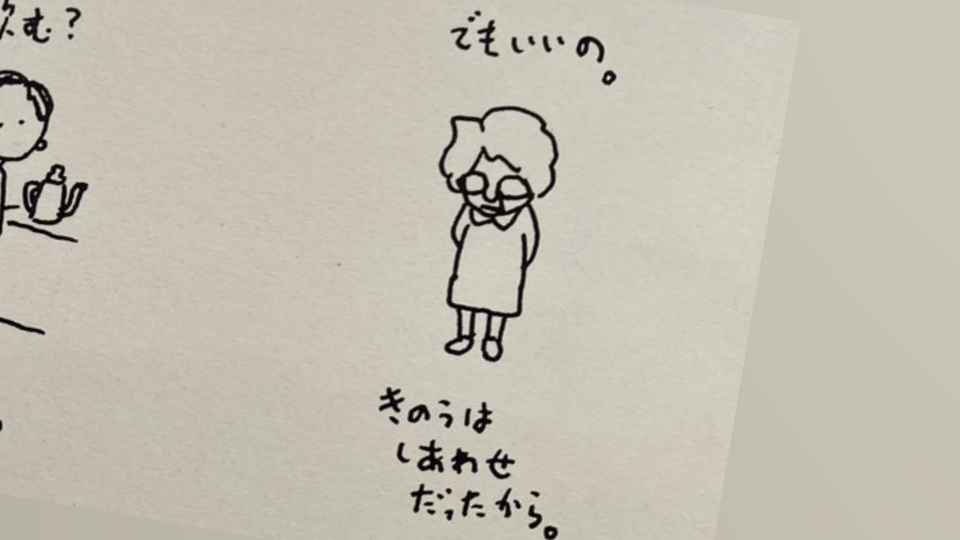 飲む？
でもいいの。
きのうは
しあわせ
だったから。